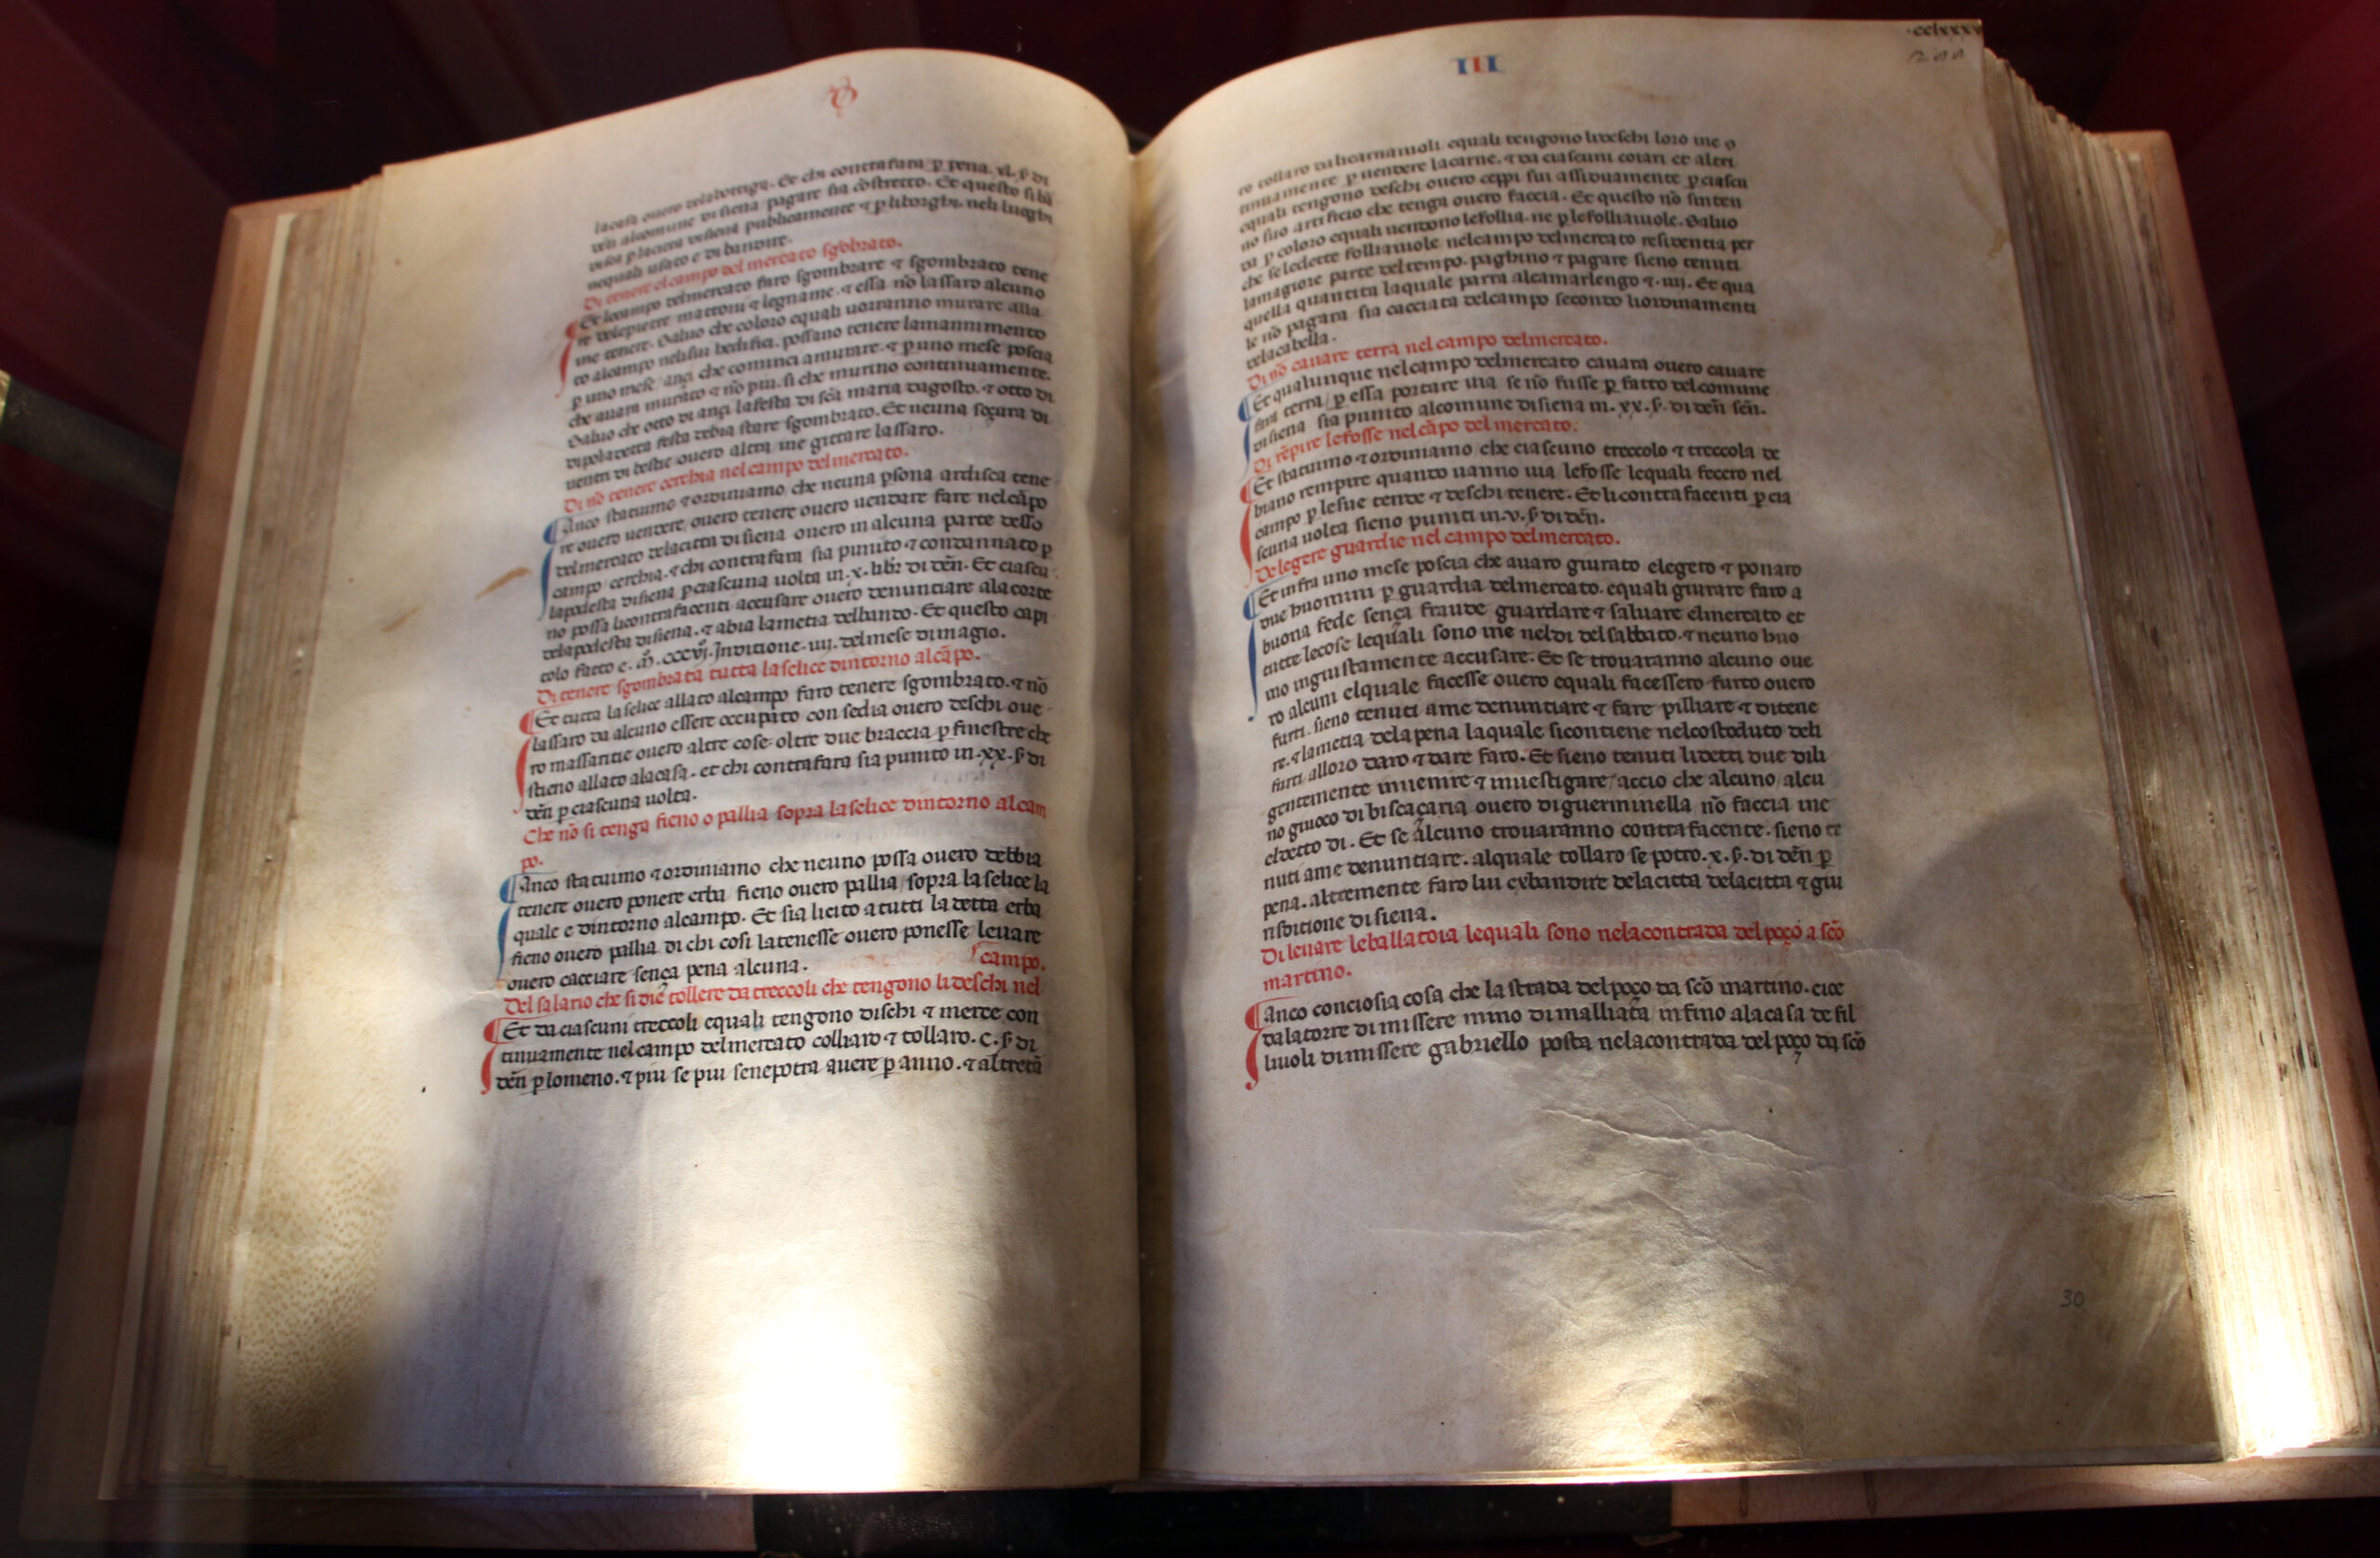 la casa ouero dela bottiga. Et chi contrafara p̱ pena. xl. ꝭ. di
den̄ alcomune di siena pagare sia cōstretto. Et questo si ba
disca p̱ la citta di siena publicamente ⁊ p̱ li borghi. neli luoghi
nequali usato e di bandire.
Di tenere el campo del mercato sgōbrato.
Et lo campo delmercato faro sgombrare ⁊ sgombrato tene
re dele pietre mattoni ⁊ legname. ⁊ essa nō lassaro alcuno
ine tenere. Saluo che coloro equali uorranno murare alla
to alcampo neli sui hedifici. possano tenere lamannimento
p̱ uno mese / ançi che cominci amurare. ⁊ p̱ uno mese poscia
che auara murato ⁊ nō piu. si che murino continuamente.
Saluo che otto di ançi la festa di sc̄a maria dagosto. ⁊ otto di
di po la detta festa debia stare sgombrato. Et neuna soçura di
uentri di bestie ouero altra ine gittare lassaro.
Di nō tenere cerchia nel campo delmercato.
Anco statuimo ⁊ ordiniamo che neuna p̱sona ardisca tene
re ouero uendere ouero tenere ouero uendare fare nelcāpo
delmercato dela citta di siena ouero in alcuna parte desso
campo / cerchia. ⁊ chi contrafara sia punito ⁊ condannato p̱
la podesta di siena p̱ ciascuna uolta in. x. libr̄ di den̄. Et ciascu
no possa li contrafacenti accusare ouero denunciare ala corte
dela podesta di siena. ⁊ abia la meta del bando. Et questo capi
tolo fatto e. M̄. CCCVJ. Inditione. iiij. delmese di magio.
Di tenere sgombrata tutta la selice dintorno al cāpo.
Et tutta la selice allato alcampo faro tenere sgombrato. ⁊ nō
lassaro da alcuno essere occupato con sedia ouero deschi oue
ro massaritie ouero altre cose. oltre due braccia p̱ finestre che
stieno allato ala casa. et chi contrafara sia punito in. xx. ꝭ di
den̄ p̱ ciascuna uolta.
Che nō si tenga fieno o pallia sopra la selice dintorno al cam
po.
Anco statuimo ⁊ ordiniamo che neuno possa ouero debbia
tenere ouero ponere erba fieno ouero pallia / sopra la selice la
quale e dintorno alcampo. Et sia licito a tutti la detta erba
fieno ouero pallia di chi cosi la tenesse ouero ponesse leuare
ouero cacciare sença pena alcuna.
campo.
Del salario che si die tollere da treccoli che tengono li deschi nel
Et da ciascuni treccoli equali tengono dischi ⁊ merce con
tinuamente nel campo delmercato colliaro ⁊ tollaro. C. ꝭ di
den̄ p̱ lo meno. ⁊ piu se piu sene potra auere p̱ anno. ⁊ altretā
III
·cclxxxv
to collaro da li carnaiuoli equali tengono li deschi loro ine o
tinuamente p̱ uendere la carne. ⁊ da ciascuni coiari et altri
equali tengono deschi ouero ceppi sui assiduamente p̱ ciascu
no suo artificio che tenga ouero faccia. Et questo nō sinten
da p̱ coloro equali uendono le follia. ne p̱ le folliaiuole. Saluo
che se le dette folliaiuole nelcampo delmercato residentia per
la magiore parte del tempo. paghino ⁊ pagare sieno tenuti
quella quantita laquale parra alcamarlengo ⁊. iiij. Et qua
le nō pagara sia cacciata delcampo secondo li ordinamenti
dela cabella.
Di nō cauare terra nel campo delmercato.
Et qualunque nelcampo delmercato cauara ouero cauare
fara terra / p̱ essa portare uia se nō fusse p̱ fatto delcomune
di siena / sia punito alcomune di siena in. xx. ꝭ. di den̄ sen̄.
Di rēpire le fosse nel cāpo del mercato.
Et statuimo ⁊ ordiniamo che ciascuno treccolo ⁊ treccola de
biano rempire quando uanno uia le fosse lequali fecero nel
campo p̱ le sue tende ⁊ deschi tenere. Et li contrafacenti p̱ cia
scuna uolta sieno puniti in. v. ꝭ di den̄.
De legere guardie nel campo delmercato.
Et infra uno mese poscia che auaro giurato elegero ⁊ ponaro
due huomini p̱ guardia delmercato. equali giurare faro a
buona fede sença fraude guardare ⁊ saluare elmercato et
tutte le cose lequali sono ine neldi del sabbato. ⁊ neuno huo
mo ingiustamente accusare. Et se trouaranno alcuno oue
ro alcuni elquale facesse ouero equali facessero furto ouero
furti. sieno tenuti a me denunciare ⁊ fare pilliare ⁊ ditene
re. ⁊ la meta dela pena laquale si contiene nelcostoduto deli
furti alloro daro ⁊ dare faro. Et sieno tenuti li detti due dili
gentemente inuenire ⁊ inuestigare / accio che alcuno / alcu
no giuoco di biscaçaria ouero di guerminella nō faccia ine
eldetto di. Et se alcuno trouaranno contrafacente. sieno te
nuti a me denuntiare. alquale tollaro se potro. x. ꝭ. di den̄ p̱
pena. altremente faro lui exbandire dela citta dela citta ⁊ giu
risditione di siena.
Di leuare le ballatoia lequali sono nela contrada del poço a scō
martino.
Anco conciosia cosa che la strada del poço da scō martino. cioe
dala torre di missere mino di malliata infino ala casa de fil
liuoli di missere gabriello posta nela contrada del poço da scō
30